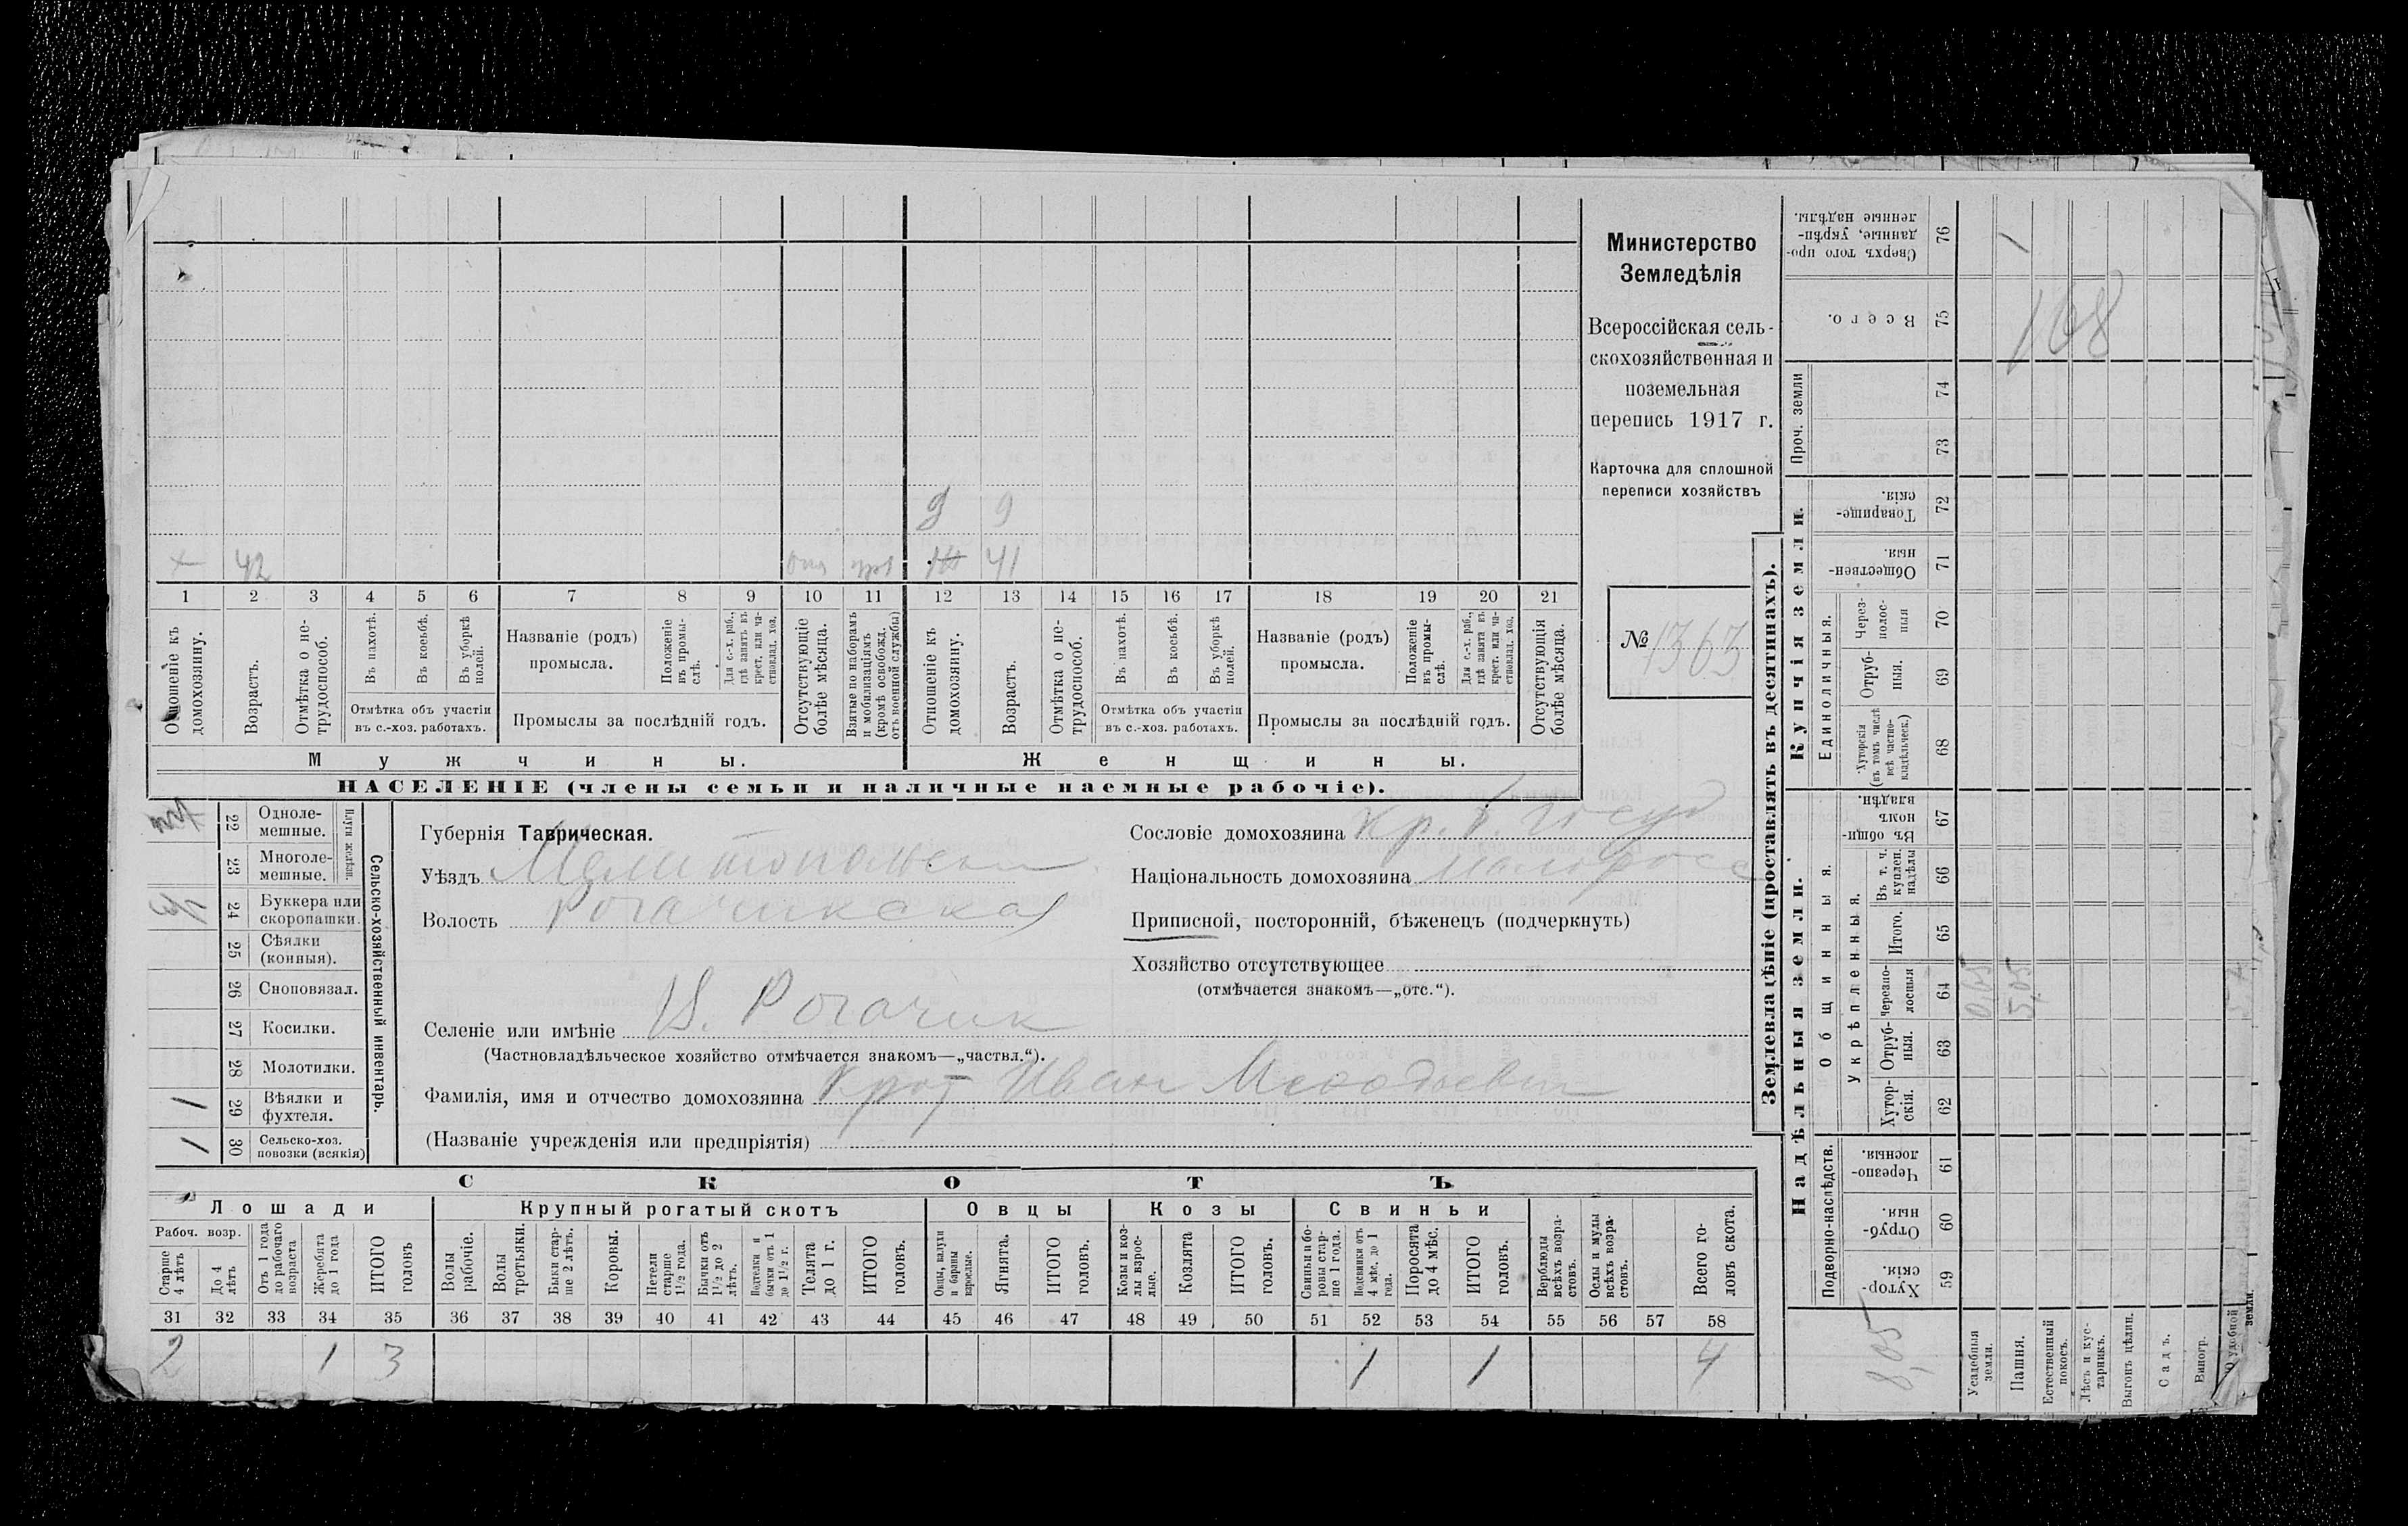 Министерство
Земледѣлія
Всероссійская сель-
скохозяйственная и
поземельная
перепись 1917 г.
Карточка для сплошной
переписи хозяйствъ
№ 1363
9 9
42 41
1 2 3 4 5 6 7 8 9 10 11 12 13 14 15 16 17 18 19 20 21
Отношеніе къ домохозяину.
Возрастъ.
Отмѣтка о не-трудоспособ.
Въ пахотѣ.
Въ косьбѣ.
Въ уборкѣ полей.
Отмѣтка объ участіи
въ с.-хоз. работахъ.
Названіе (родъ)
промысла.
Положеніе въ промы-слѣ.
Для с.-х. раб., гдѣ занятъ въ крест. или ча-стновлад. хоз.
Промыслы за послѣдній годъ.
Отсутствующіе болѣе мѣсяца.
Взятые по наборамъ и мобилизаціямъ (кромѣ освобожд. отъ военной службы)
Отношеніе къ домохозяину.
Возрастъ.
Отмѣтка о не-трудоспособ.
Въ пахотѣ.
Въ косьбѣ.
Въ уборкѣ полей.
Отмѣтка объ участіи
въ с.-хоз. работахъ.
Названіе (родъ)
промысла.
Положеніе въ промы-слѣ.
Для с.-х. раб., гдѣ занята въ крест. или ча-стновлад. хоз.
Промыслы за послѣдній годъ.
Отсутствующія болѣе мѣсяца.
Мужчины. Женщины.
НАСЕЛЕНІЕ (члены семьи и наличные наемные рабочіе).
Сельско-хозяйственный инвентарь.
Плуги желѣзн.
22 Одноле-мешные.
23 Многоле-мешные.
24 Буккера или скоропашки.
25 Сѣялки (конныя).
26 Сноповязал.
27 Косилки.
28 Молотилки.
1 29 Вѣялки и фухтеля.
1 30 Сельско-хоз. повозки (всякія)
Губернія Таврическая.
Уѣздъ Мелитопольскій
Волость Рогачикская
Сословіе домохозяина кр. б. госуд
Національность домохозяина малоросс
Приписной, посторонній, бѣженецъ (подчеркнуть)
Хозяйство отсутствующее
(отмѣчается знакомъ—„отс.“).
Селеніе или имѣніе В. Рогачик
(Частновладѣльческое хозяйство отмѣчается знакомъ—„частвл.“).
Фамилія, имя и отчество домохозяина Крот Иван Мефодьевич
(Названіе учрежденія или предпріятія)
СКОТЪ
Лошади Крупный рогатый скотъ Овцы Козы Свиньи
Рабоч. возр.
Старше 4 лѣтъ
До 4 лѣтъ
Отъ 1 года до рабочаго возраста
Жеребята до 1 года
ИТОГО головъ
Волы рабочіе.
Волы третьяки.
Быки стар-ше 2 лѣтъ.
Коровы.
Нетели старше 1½ года.
Бычки отъ 1½ до 2 лѣтъ.
Подтелки и бычки отъ 1 до 1½ г.
Телята до 1 г.
ИТОГО головъ.
Овцы, валухи и бараны взрослые.
Ягнята.
ИТОГО головъ.
Козы и коз-лы взрос-лые.
Козлята
ИТОГО головъ.
Свиньи и бо-ровы стар-ше 1 года.
Подсвинки отъ 4 мѣс. до 1 года.
Поросята до 4 мѣс.
ИТОГО головъ.
Верблюды всѣхъ возра-стовъ.
Ослы и мулы всѣхъ возра-стовъ.
Всего го-ловъ скота.
31 32 33 34 35 36 37 38 39 40 41 42 43 44 45 46 47 48 49 50 51 52 53 54 55 56 57 58
2 1 3 1 1 4
Землевладѣніе (проставлять въ десятинахъ).
Купчія земли.
Надѣльныя земли.
Сверхъ того про-данные, укрѣп-ленные надѣлы. 76 1
Всего. 75 108
Проч. земли
74
73
Товарище-скія. 72
Обществен-ныя. 71
Единоличныя.
Через-полос-ныя 70
Отруб-ныя. 69
Хуторскія (въ томъ числѣ всѣ частно-владѣльческ.) 68
Общинныя.
Въ общи-номъ владѣн. 67
Укрѣпленныя.
Въ т. ч. куплен. надѣлы 66
Итого. 65
Черезпо-лосныя 64 0,05 5,05
Отруб-ныя. 63
Хутор-скія. 62
Подворно-наслѣдств.
Черезпо-лосныя. 61
Отруб-ныя. 60
Хутор-скія. 59
Усадебныя земли.
Пашня.
Естественный покосъ.
Лѣсъ и кус-тарникъ.
Выгонъ цѣлин.
Садъ.
Виногр.
удобной земли.